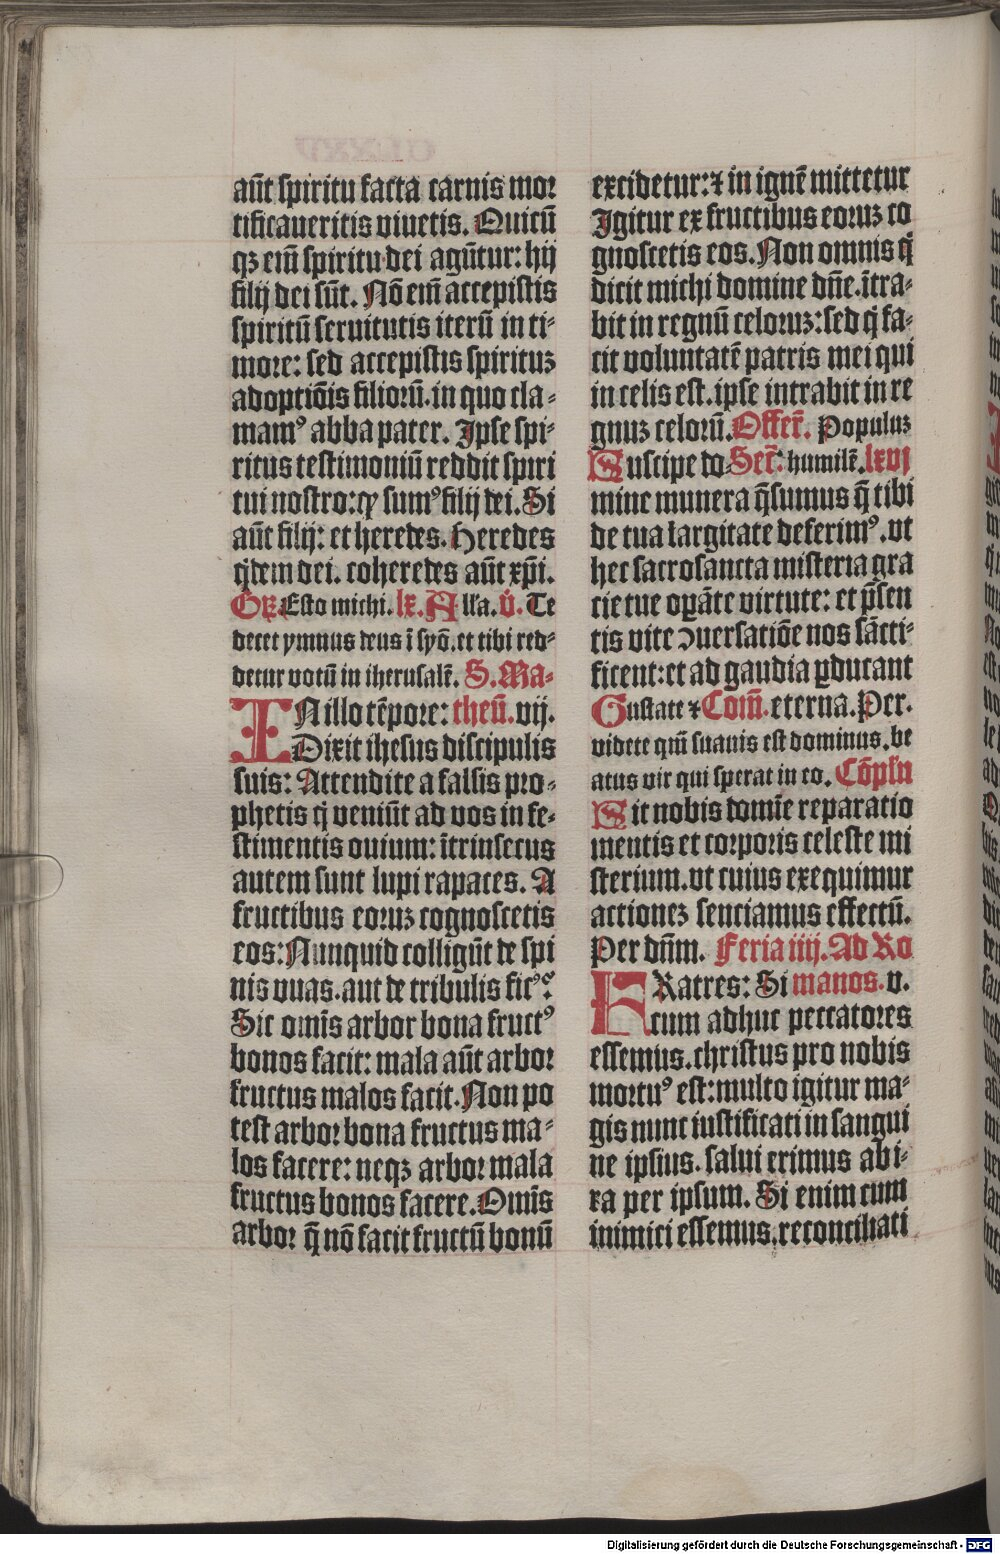 aūt spiritu facta carnis mor
tificaueritis viuetis. Quicū
qꝫ eīm spiritu dei agūtur: hij
filij dei sūt. Nō eīm accepistis
spiritū seruitutis iterū in ti-
more: sed accepistis spirituꝫ
adoptiōis filiorū. in quo cla-
mamꝰ abba pater. Ipse spi-
ritus testimoniū reddit spiri
tui nostro: ꝙ sumꝰ filij dei. Si
aūt filij: et heredes. Heredes
q̇dem dei. coheredes aūt xp̄i.
GR. Esto michi. lx. A lla. v̇. Te
decet ymnus deus ī syō. et tibi red-
detur votū in iherusalē. S. Ma-
IN illo tēpore: theū. vij.
Dixit ihesus discipulis
suis: Attendite a falsis pro-
phetis q̇ veniūt ad vos in fe-
stimentis ouium: ītrinsecus
autem sunt lupi rapaces. A
fructibus eoruꝫ cognoscetis
eos: Nunquid colligūt de spi
nis vuas. aut de tribulis ficꝰ?
Sic om̄is arbor bona fructꝰ
bonos facit: mala aūt arbor
fructus malos facit. Non po
test arbor bona fructus ma-
los facere: neqꝫ arbor mala
fructus bonos facere. Om̄is
arbor q̄ nō facit fructū bonū
excidetur: ⁊ in ignē mittetur
Igitur ex fructibus eoruꝫ co
gnoscetis eos. Non omnis q̇
dicit michi domine dn̄e. ītra-
bit in regnū celoruꝫ: sed q̇ fa-
cit voluntatē patris mei qui
in celis est. ipse intrabit in re
gnuꝫ celorū. Offer̄. Populuꝫ
Suscipe do- Secr̄. humilē. lxvj
mine munera q̄sumus q̄ tibi
de tua largitate deferimꝰ. vt
hec sacrosancta misteria gra
cie tue oꝑāte virtute: et p̄sen
tis vite ↄuersatiōe nos sācti-
ficent: et ad gaudia ꝑducant
Gustate ⁊ Com̄. eterna. Per.
videte qm̄ suauis est dominus. be
atus vir qui sperat in eo. Cōpłn
Sit nobis domīe reparatio
mentis et corporis celeste mi
sterium. vt cuius exequimur
actioneꝫ senciamus effectū.
Per dn̄m. Feria iiij. Ad Ro
FRatres: Si manos. v.
cum adhuc peccatores
essemus. christus pro nobis
mortuꝰ est: multo igitur ma-
gis nunc iustificati in sangui
ne ipsius. salui erimus ab i-
ra per ipsum. Si enim cum
inimici essemus. reconciliati
Digitalisierung gefördert durch die Deutsche Forschungsgemeinschaft - DFG